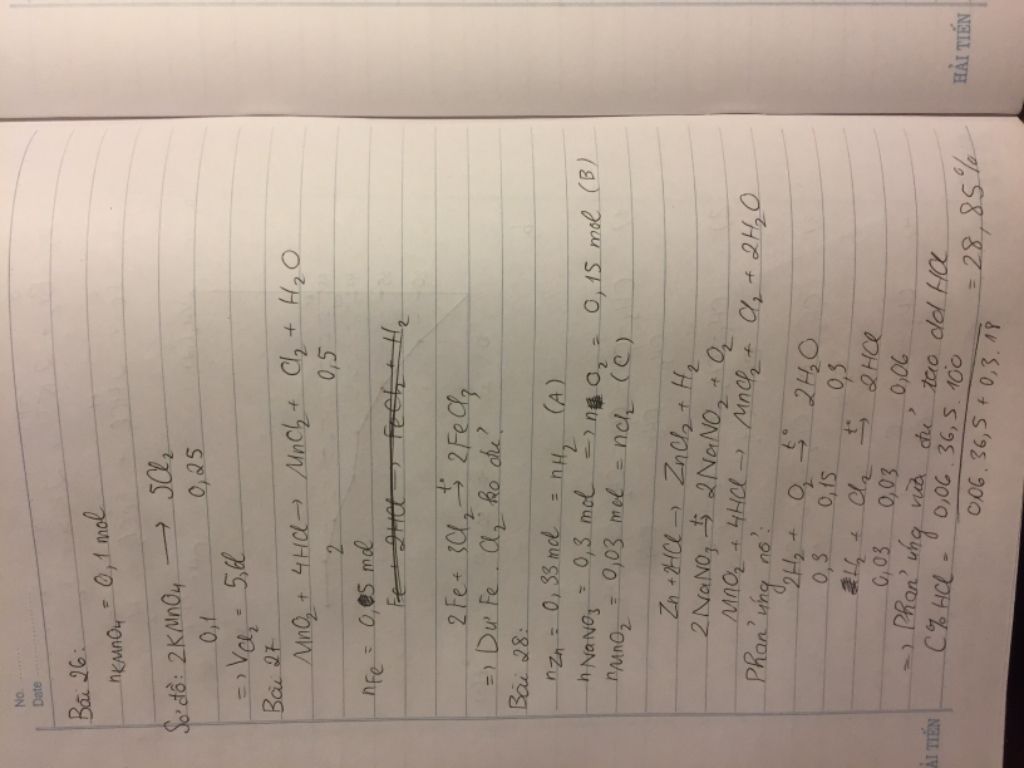 No.
Date
Bài 26:
nKMnO4 = 0,1 mol
Sơ đồ: 2KMnO4 → 5Cl2
0,1 0,25
=> VCl2 = 5,6l
Bài 27
MnO2 + 4HCl → MnCl2 + Cl2 + H2O
2 0,5
nFe = 0,5 mol
Fe + 2HCl → FeCl2 + H2
2Fe + 3Cl2 t°→ 2FeCl3
=> Dư Fe. Cl2 ko dư
Bài 28:
nZn = 0,33 mol = nH2 (A)
nNaNO3 = 0,3 mol => nO2 = 0,15 mol (B)
nMnO2 = 0,03 mol = nCl2 (C)
Zn + 2HCl → ZnCl2 + H2
2NaNO3 t°→ 2NaNO2 + O2
MnO2 + 4HCl → MnCl2 + Cl2 + 2H2O
Phản ứng nổ:
2H2 + O2 t°→ 2H2O
0,3 0,15 0,3
H2 + Cl2 t°→ 2HCl
0,03 0,03 0,06
=> Phản ứng vừa đủ tạo dd HCl
C% HCl = 0,06.36,5.100 = 28,85%
0,06.36,5 + 0,3.18
HẢI TIẾN
ẢI TIẾN